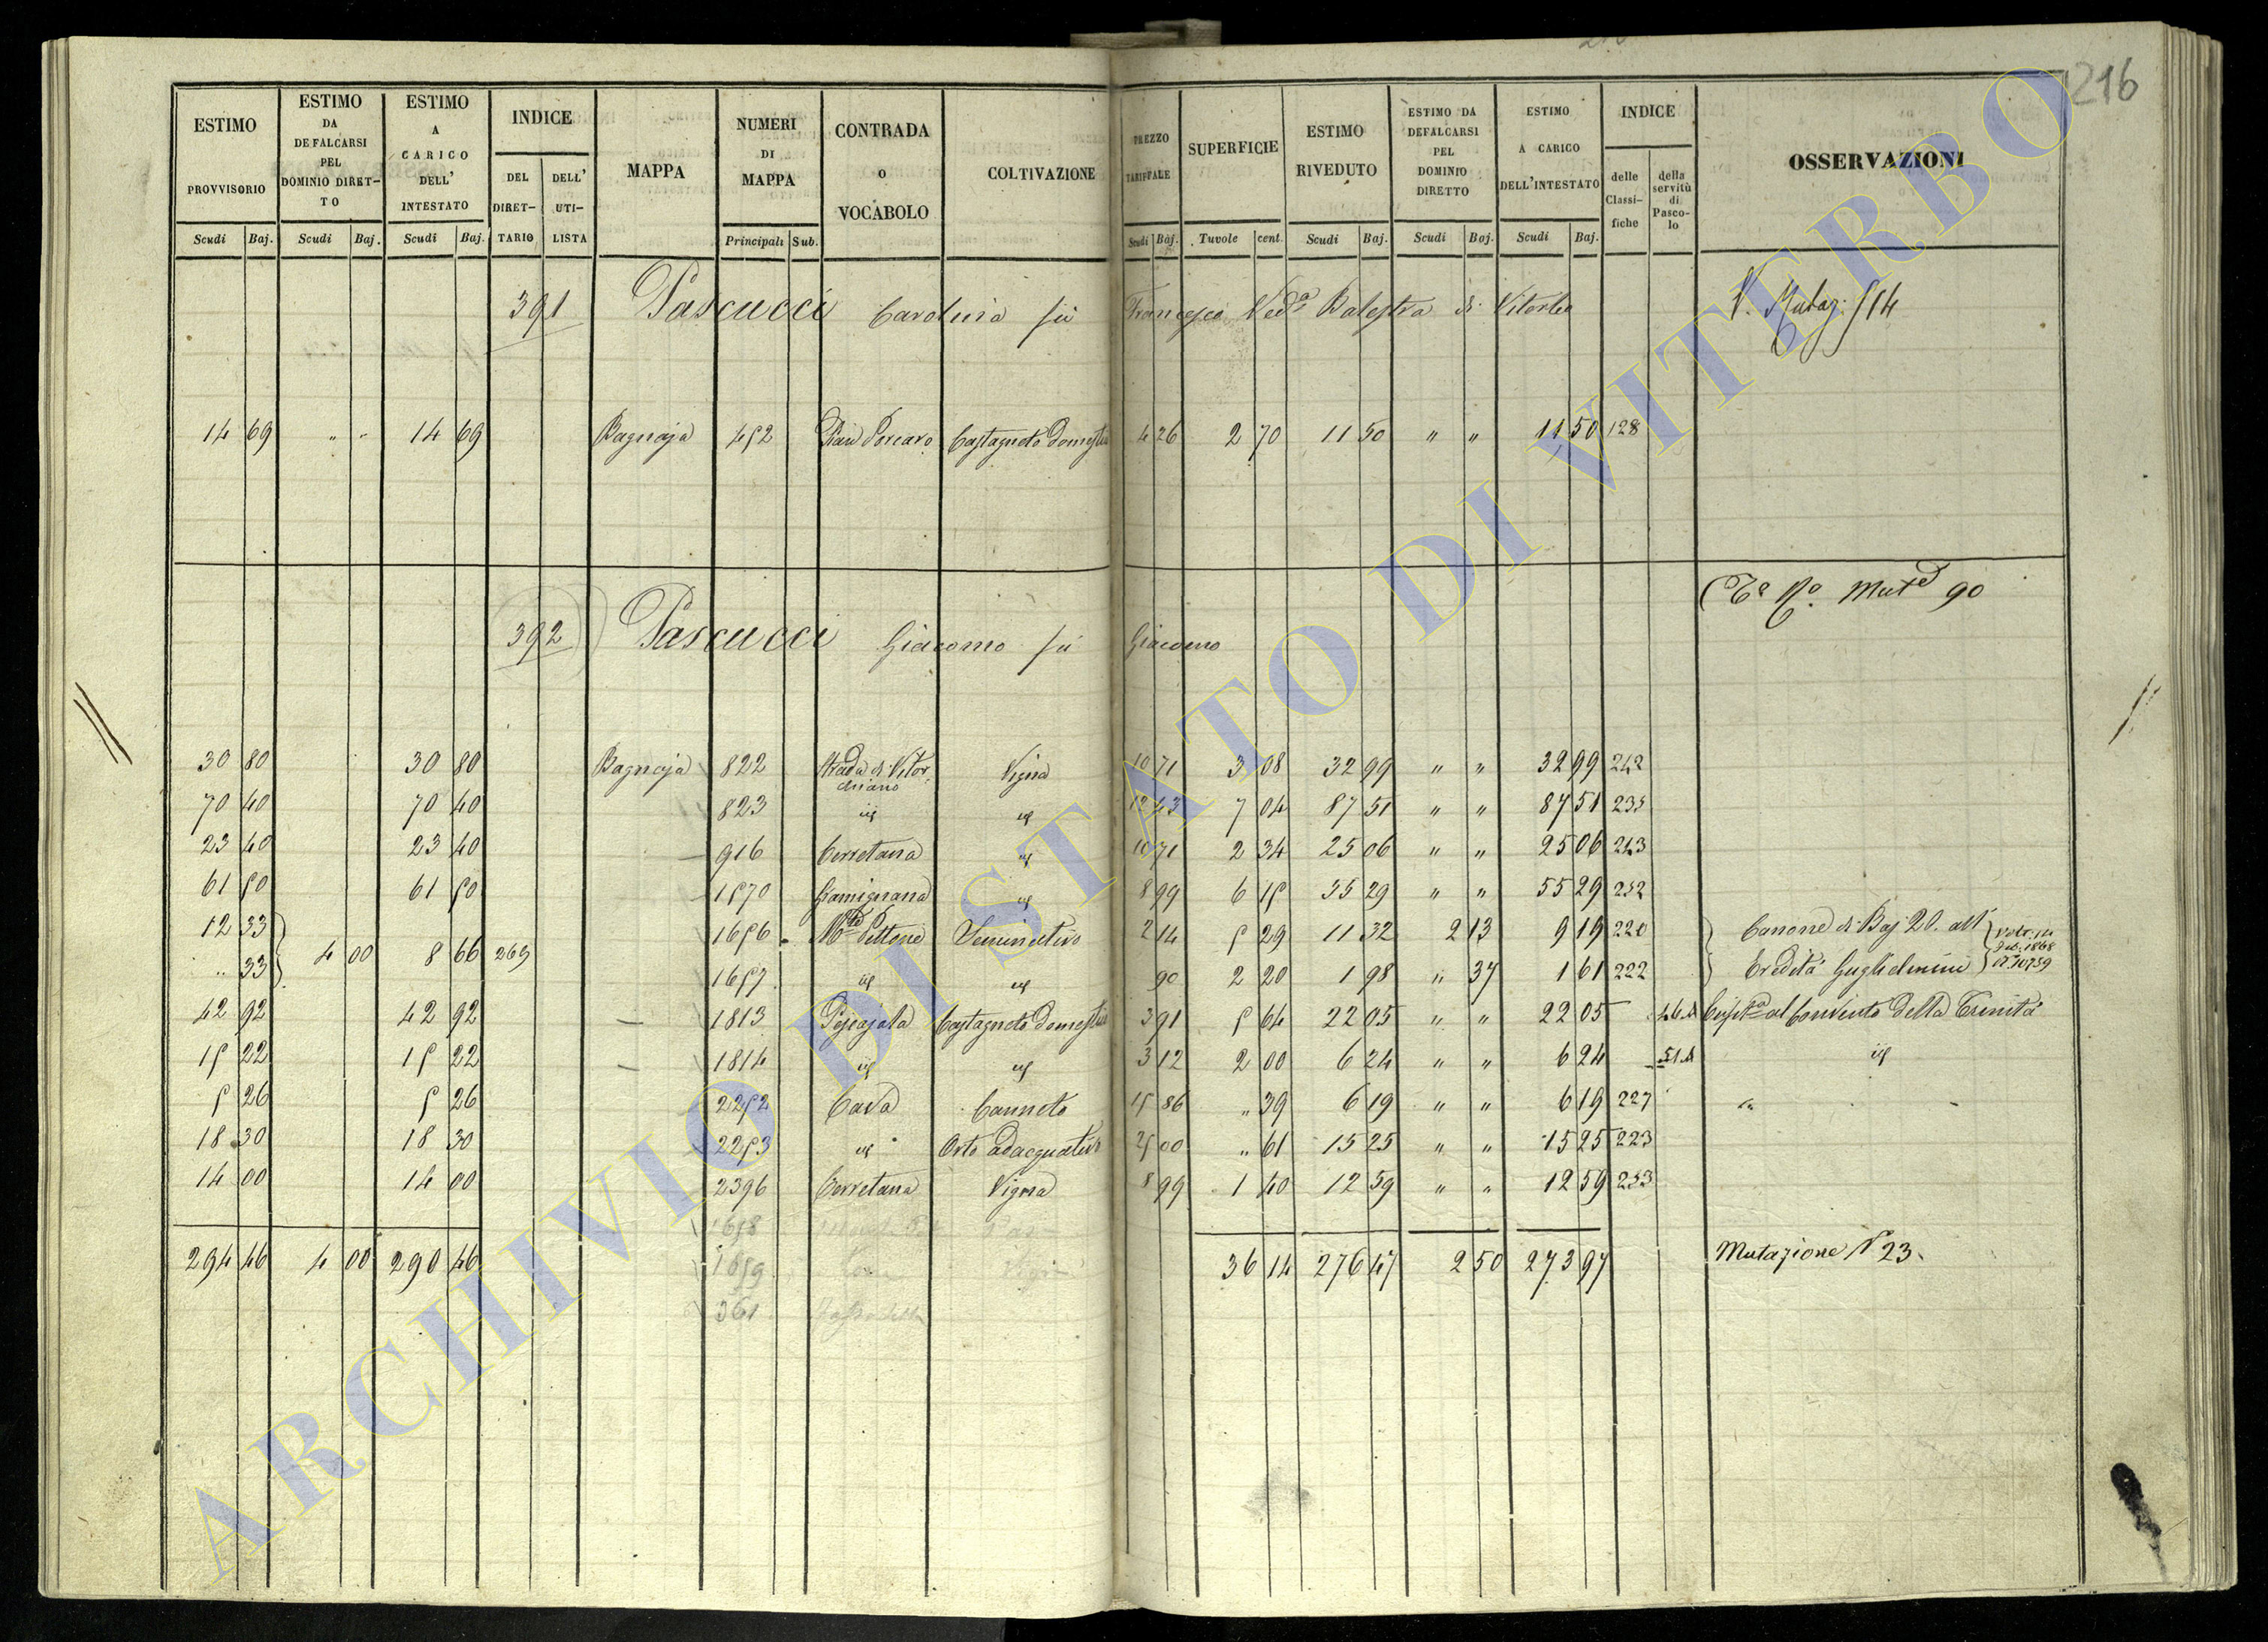 216
ESTIMO PROVVISORIO Scudi Baj.
ESTIMO DA DEFALCARSI PEL DOMINIO DIRET-TO Scudi Baj.
ESTIMO A CARICO DELL' INTESTATO Scudi Baj.
INDICE DEL DIRET-TARIO DELL' UTI-LISTA
MAPPA
NUMERI DI MAPPA Principali Sub.
CONTRADA O VOCABOLO
COLTIVAZIONE
PREZZO TARIFFALE Scudi Baj.
SUPERFICIE Tavole cent.
ESTIMO RIVEDUTO Scudi Baj.
ESTIMO DA DEFALCARSI PEL DOMINIO DIRETTO Scudi Baj.
ESTIMO A CARICO DELL'INTESTATO Scudi Baj.
INDICE delle Classi-fiche della servitù di Pasco-lo
OSSERVAZIONI
391 Pascucci Carolina fu Francesco Ved.a Balestra di Viterbo
14 69 " " 14 69 Bagnaja 452 Castagneto Domest 4 26 2 70 11 50 " " 11 50 128
392 Pascucci Giacomo fu Giacomo 90
30 80 30 80 Bagnaja 822 Strada di Vitor chiano Vigna 10 71 3 08 32 99 " " 32 99 242
70 40 70 40 823 id id 12 43 7 04 87 51 " " 87 51 235
23 40 23 40 916 Cerretana id 10 71 2 34 25 06 " " 25 06 243
61 50 61 50 1570 Gramignana id 8 99 6 15 55 29 " " 55 29 252
12 33 1656 Seminativo 2 14 5 29 11 32 2 13 9 19 220 Canone di Baj 20. all'
4 00 8 66 263
" 33 1657 id id 90 2 20 1 98 " 37 1 61 222 Eredità Guglielmini
42 92 42 92 1813 Castagneto Domest 3 91 5 64 22 05 " " 22 05 al Convento della Trinità
15 22 15 22 1814 id id 3 12 2 00 6 24 " " 6 24 id
5 26 5 26 2252 Cava Canneto 15 86 " 39 6 19 " " 6 19 227
18 30 18 30 2253 id Orto adacquativo 25 00 " 61 15 25 " " 15 25 223
14 00 14 00 2396 Cerretana Vigna 8 99 1 40 12 59 " " 12 59 253
1658
294 46 4 00 290 46 1659 36 14 276 47 2 50 273 97 Mutazione N 23.
361
ARCHIVIO DI STATO DI VITERBO